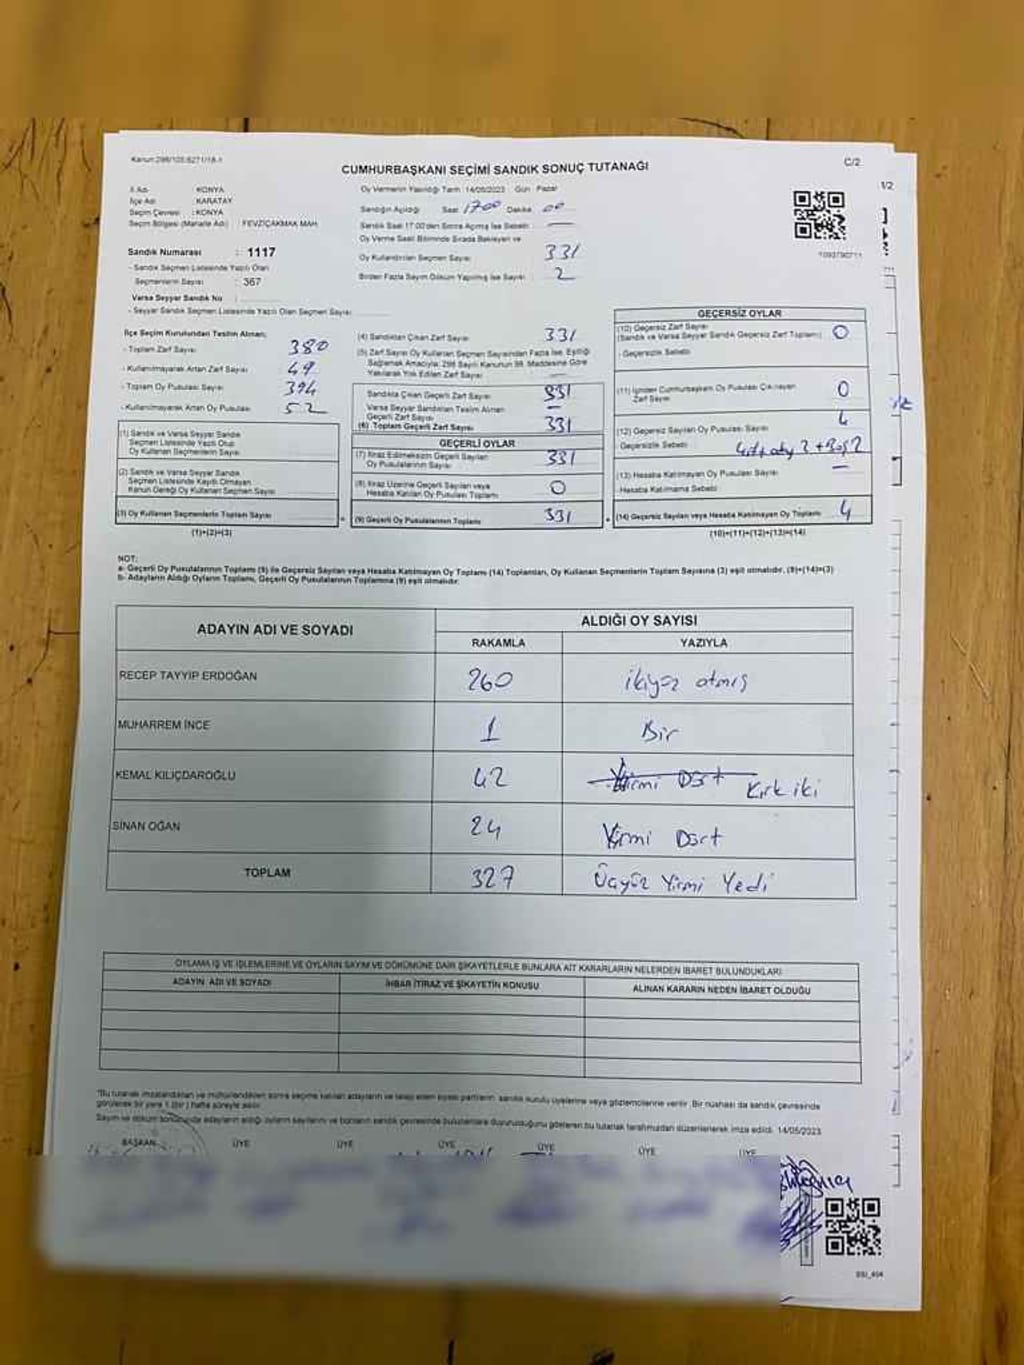 Kanun:298/103,6271/18-1
C/2
CUMHURBAŞKANI SEÇİMİ SANDIK SONUÇ TUTANAĞI
1/2
İl Adı : KONYA
İlçe Adı : KARATAY
Seçim Çevresi : KONYA
Seçim Bölgesi (Mahalle Adı) : FEVZİÇAKMAK MAH.
Sandık Numarası : 1117
- Sandık Seçmen Listesinde Yazılı Olan
Seçmenlerin Sayısı : 367
Varsa Seyyar Sandık No :
- Seyyar Sandık Seçmen Listesinde Yazılı Olan Seçmen Sayısı:
Oy Vermenin Yapıldığı Tarih :14/05/2023 Gün : Pazar
Sandığın Açıldığı Saat 17 00 Dakika 00
Sandık Saat 17:00'den Sonra Açılmış İse Sebebi: —
Oy Verme Saati Bitiminde Sırada Bekleyen ve
Oy Kullandırılan Seçmen Sayısı 331
Birden Fazla Sayım Döküm Yapılmış İse Sayısı 2
İlçe Seçim Kurulundan Teslim Alınan:
- Toplam Zarf Sayısı 380
- Kullanılmayarak Artan Zarf Sayısı 49
- Toplam Oy Pusulası Sayısı 394
- Kullanılmayarak Artan Oy Pusulası 52
(1) Sandık ve Varsa Seyyar Sandık
Seçmen Listesinde Yazılı Olup
Oy Kullanan Seçmenlerin Sayısı
(2) Sandık ve Varsa Seyyar Sandık
Seçmen Listesinde Kayıtlı Olmayan
Kanun Gereği Oy Kullanan Seçmen Sayısı
(3) Oy Kullanan Seçmenlerin Toplam Sayısı
(1)+(2)=(3)
(4) Sandıktan Çıkan Zarf Sayısı 331
(5) Zarf Sayısı Oy Kullanan Seçmen Sayısından Fazla İse, Eşitliği
Sağlamak Amacıyla; 298 Sayılı Kanunun 98. Maddesine Göre
Yakılarak Yok Edilen Zarf Sayısı —
Sandıkta Çıkan Geçerli Zarf Sayısı 331
Varsa Seyyar Sandıktan Teslim Alınan
Geçerli Zarf Sayısı —
(6) Toplam Geçerli Zarf Sayısı 331
GEÇERLİ OYLAR
(7) İtiraz Edilmeksizin Geçerli Sayılan
Oy Pusulalarının Sayısı 331
(8) İtiraz Üzerine Geçerli Sayılan veya
Hesaba Katılan Oy Pusulası Toplamı 0
(9) Geçerli Oy Pusulalarının Toplamı 331
GEÇERSİZ OYLAR
(10) Geçersiz Zarf Sayısı
(Sandık ve Varsa Seyyar Sandık Geçersiz Zarf Toplamı) 0
- Geçersizlik Sebebi:
(11) İçinden Cumhurbaşkanı Oy Pusulası Çıkmayan
Zarf Sayısı 0
(12) Geçersiz Sayılan Oy Pusulası Sayısı 4
- Geçersizlik Sebebi: 2 + Boş 2
(13) Hesaba Katılmayan Oy Pusulası Sayısı —
- Hesaba Katılmama Sebebi:
(14) Geçersiz Sayılan veya Hesaba Katılmayan Oy Toplamı 4
(10)+(11)+(12)+(13)=(14)
NOT:
a- Geçerli Oy Pusulalarının Toplamı (9) ile Geçersiz Sayılan veya Hesaba Katılmayan Oy Toplamı (14) Toplamları, Oy Kullanan Seçmenlerin Toplam Sayısına (3) eşit olmalıdır. (9)+(14)=(3)
b- Adayların Aldığı Oyların Toplamı, Geçerli Oy Pusulalarının Toplamına (9) eşit olmalıdır.
ADAYIN ADI VE SOYADI
ALDIĞI OY SAYISI
RAKAMLA YAZIYLA
RECEP TAYYİP ERDOĞAN 260 ikiyüz atmış
MUHARREM İNCE 1 Bir
KEMAL KILIÇDAROĞLU 42 Yirmi Dört Kırk iki
SİNAN OĞAN 24 Yirmi Dört
TOPLAM 327 Üçyüz Yirmi Yedi
OYLAMA İŞ VE İŞLEMLERİNE VE OYLARIN SAYIM VE DÖKÜMÜNE DAİR ŞİKAYETLERLE BUNLARA AİT KARARLARIN NELERDEN İBARET BULUNDUKLARI
ADAYIN ADI VE SOYADI İHBAR İTİRAZ VE ŞİKAYETİN KONUSU ALINAN KARARIN NEDEN İBARET OLDUĞU
*Bu tutanak imzalandıktan ve mühürlendikten sonra seçime katılan adayların ve talep eden siyasi partilerin sandık kurulu üyelerine veya gözlemcilerine verilir. Bir nüshası da sandık çevresinde
görülecek bir yere 1 (bir) hafta süreyle asılır.
Sayım ve döküm sonucunda adayların aldığı oyların sayılarını ve bunların sandık çevresinde bulunanlara duyurulduğunu gösteren bu tutanak tarafımızdan düzenlenerek imza edildi. 14/05/2023
BAŞKAN ÜYE ÜYE ÜYE ÜYE ÜYE ÜYE